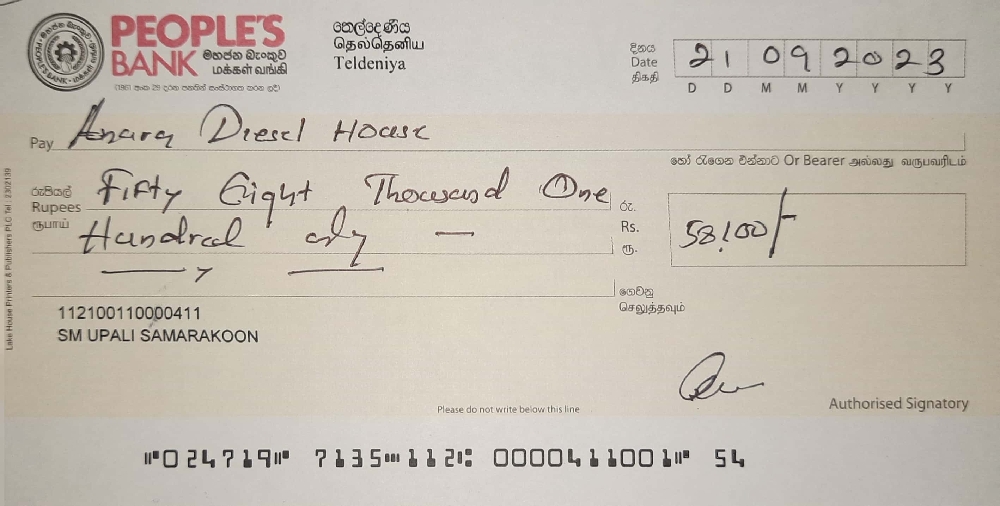 PEOPLE'S BANK
මහජන බැංකුව
மக்கள் வங்கி
තෙල්දෙණිය
தெல்தெனிய
Teldeniya
දිනය
Date
திகதி
21 09 2023
D D M M Y Y Y Y
Pay Anura Diesel House
හෝ රැගෙන එන්නාට Or Bearer அல்லது வருபவரிடம்
රුපියල්
Rupees
ரூபாய்
Fifty Eight Thousand One
Hundred only —
රු.
Rs.
ரூ.
58,100/-
ගෙවනු
செலுத்தவும்
112100110000411
SM UPALI SAMARAKOON
Authorised Signatory
Please do not write below this line
⑈024719⑈ 7135⑉112⑆ 0000411001⑈ 54
Lake House Printers & Publishers PLC Tel : 2302139